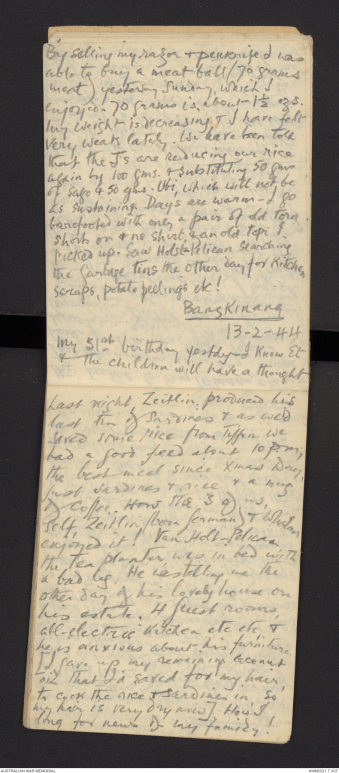 By selling my razor & penknife I was
able to buy a meat ball (70 grams
meat) yesterday Sunday, which I
enjoyed. 70 grams is about 1½ ozs.
My weight is decreasing & I have felt
very weak lately. We have been told
that the Js are reducing our rice
again by 100 gms. & substituting 50 gms
of sago & 50 gms. Ubi, which will not be
as sustaining. Days are warm - I go
barefooted with only a pair of old torn
shorts on & no shirt, & an old topi I
picked up. Saw Holst-Pelican searching
the garbage tins the other day for Kitchen
scraps, potato peelings etc!
BangKinang
13-2-44
My 51st birthday yestdy - I know Et
& the children will have a thought
Last night Zeitlin produced his
last tin of Sardines & as we'd
saved some rice from Tiffin we
had a good feed about 10 p.m.,
the best meal since Xmas Day,
just sardines & rice & a mug
of Coffee. How the 3 of us,
self, Zeitlin (born German) &
enjoyed it! Van Holt-Pelican
the tea planter was in bed with
a bad leg. He was telling me the
other day of his lovely house on
his estate. 4 guest rooms,
all-electric Kitchen etc etc. &
he is anxious about his furniture
I gave up my remaining coconut
oil that I'd saved for my hair,
to cook the rice & sardines in. So
my hair is very dry now! How I
long for news of my family!
AUSTRALIAN WAR MEMORIAL